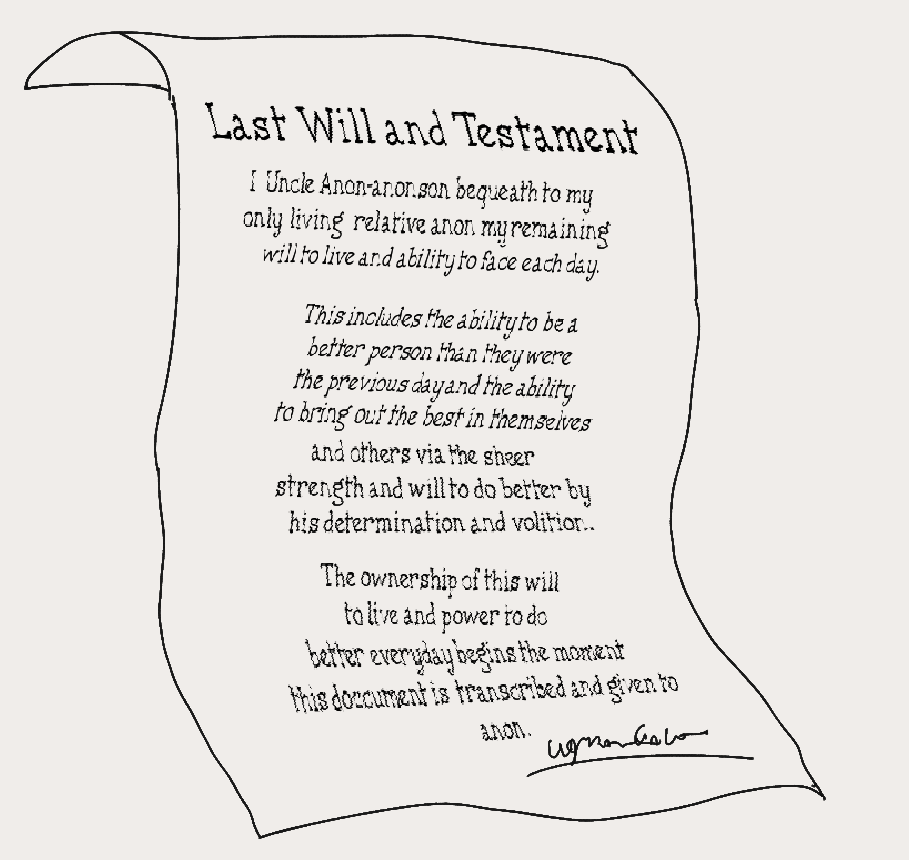 Last Will and Testament
I Uncle Anon-anonson bequeath to my
only living relative anon my remaining
will to live and ability to face each day.
This includes the ability to be a
better person than they were
the previous day and the ability
to bring out the best in themselves
and others via the sheer
strength and will to do better by
his determination and volition..
The ownership of this will
to live and power to do
better everyday begins the moment
this doccument is transcribed and given to
anon.